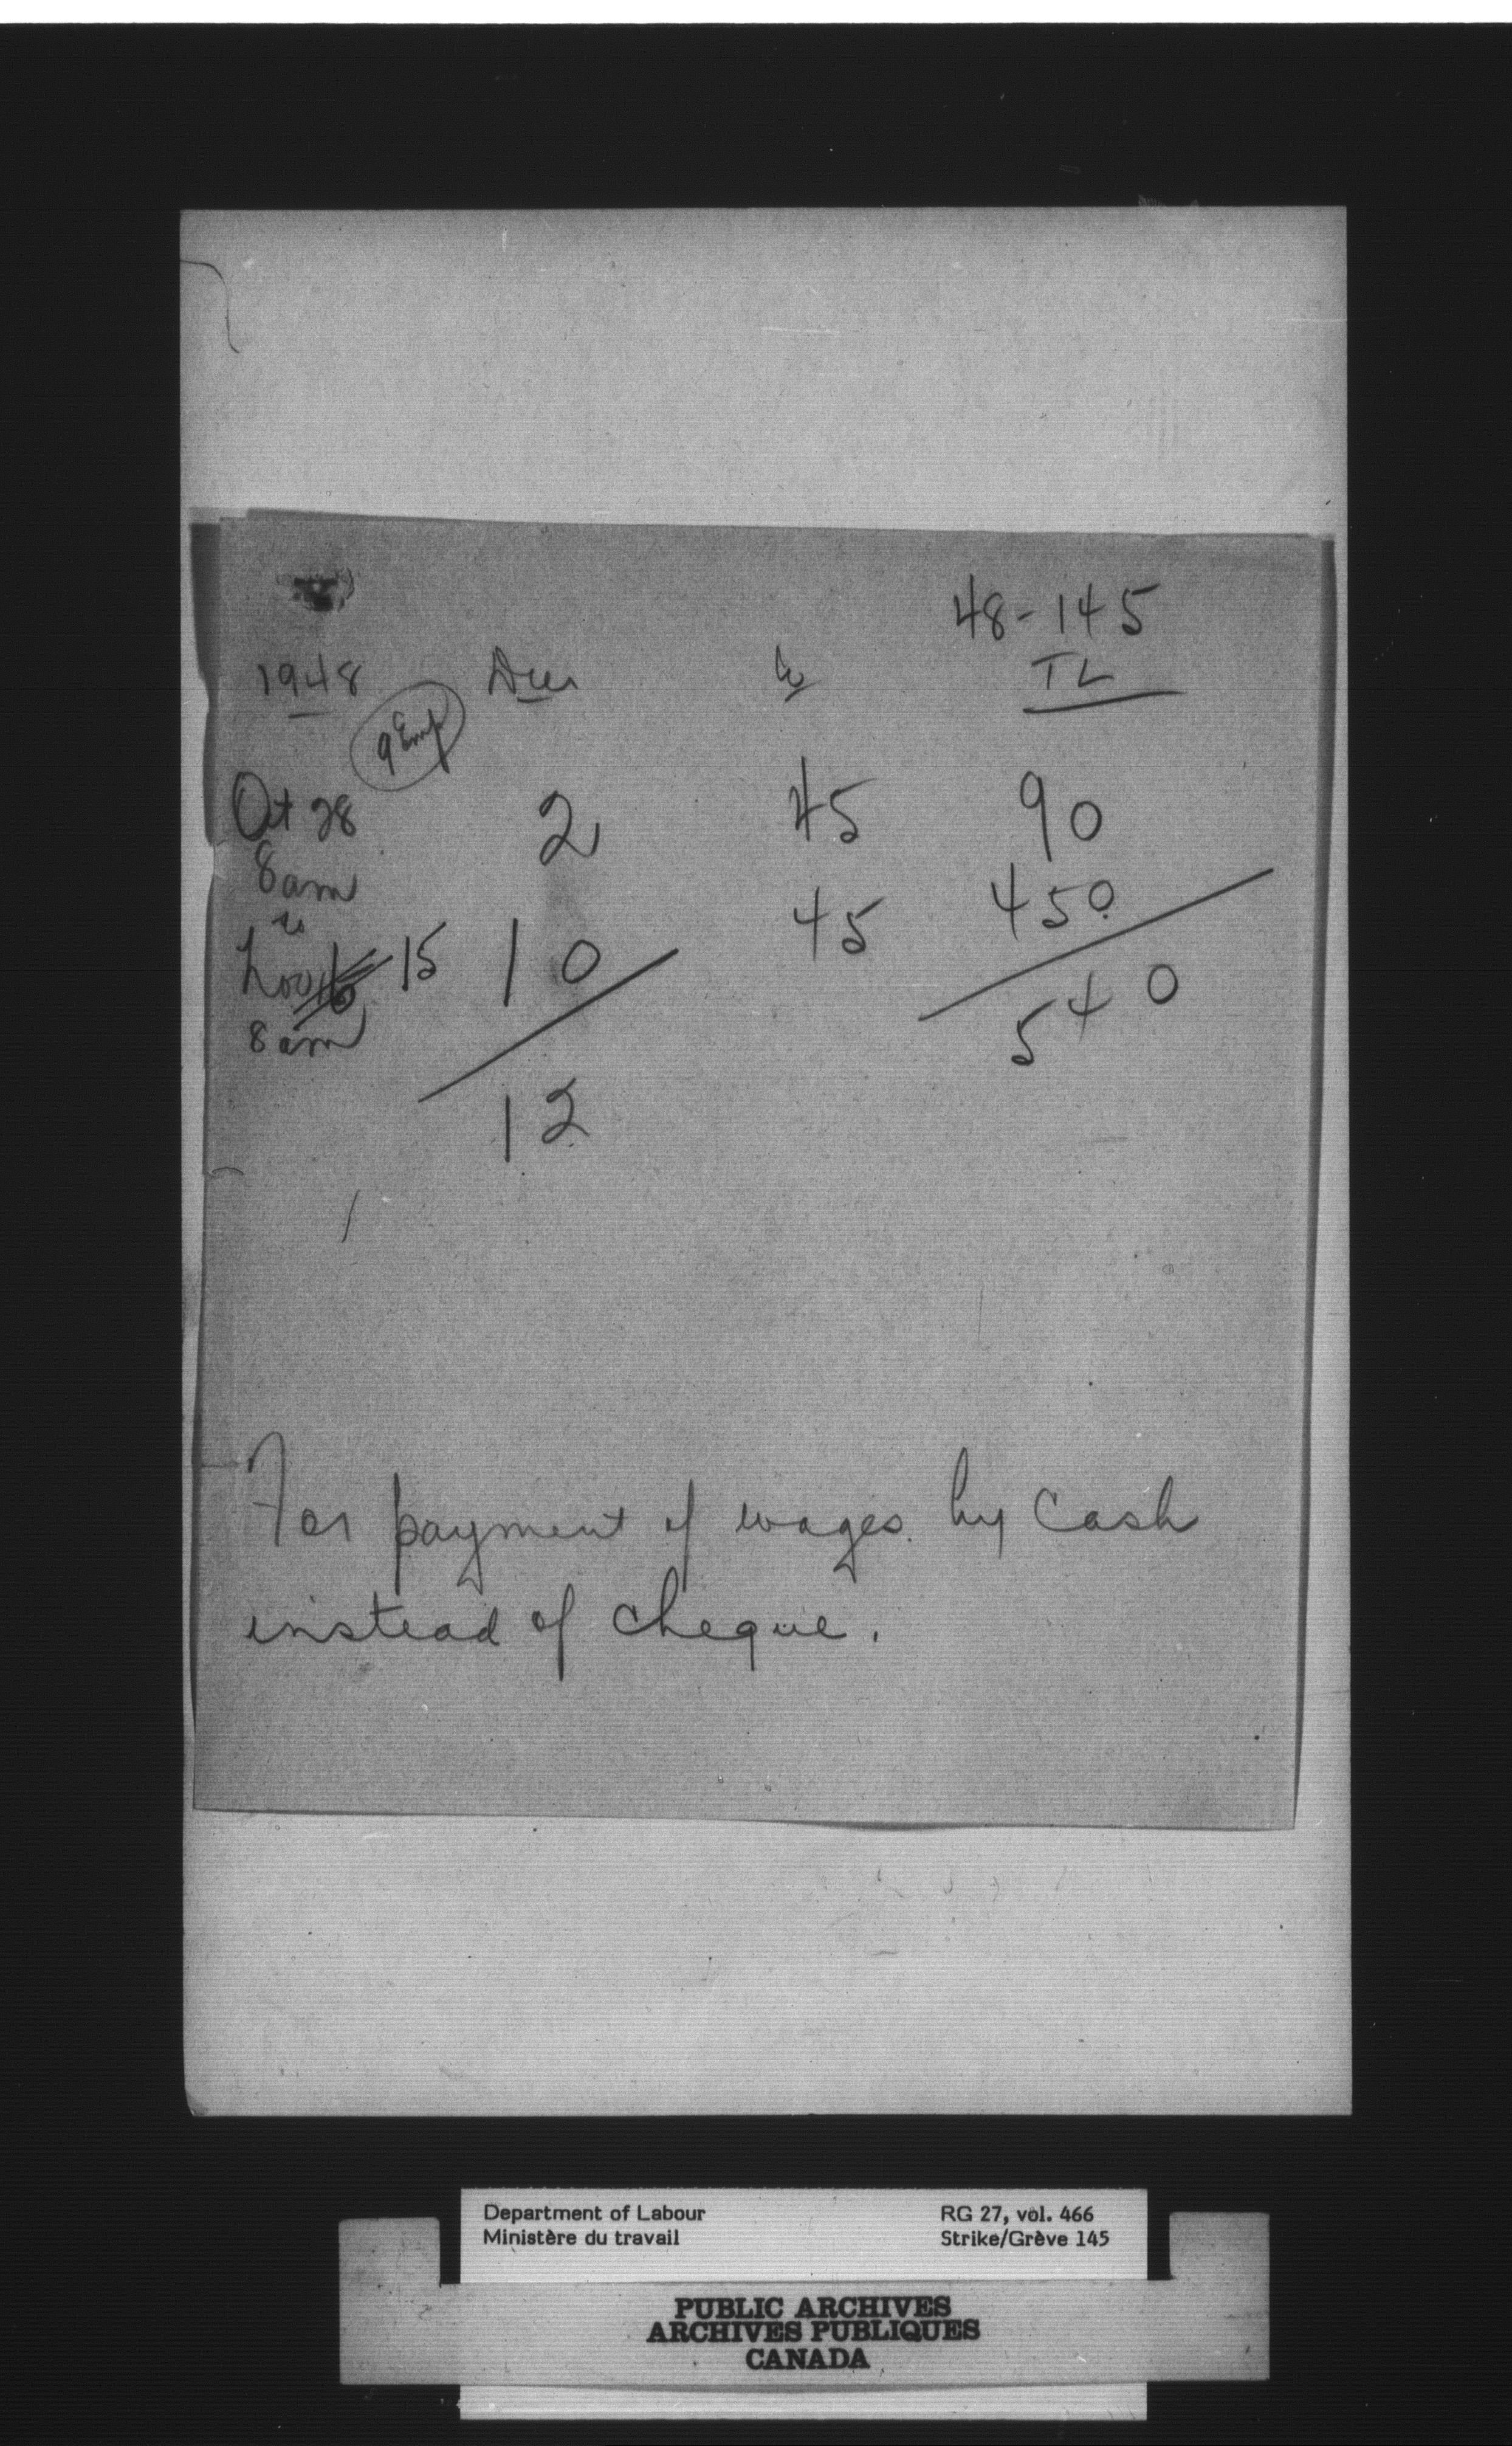 48-145
1948 Dur W TL
9 Emp
Oct 28 2 45 90
8 am
to
Nov 16 15 10 45 450
8 am 540
12
For payment of wages by cash
instead of cheque.
Department of Labour RG 27, vol. 466
Ministère du travail Strike/Grève 145
PUBLIC ARCHIVES
ARCHIVES PUBLIQUES
CANADA